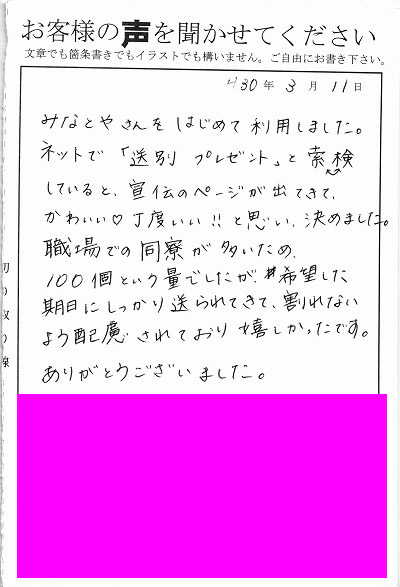 お客様の声を聞かせてください
文章でも箇条書きでもイラストでも構いません。ご自由にお書き下さい。
H30年3月11日
みなとやさんをはじめて利用しました。
ネットで「送別 プレゼント」と索検
していると、宣伝のページが出てきて、
かわいい♡丁度いい!!と思い、決めました。
職場での同寮が多いため、
100個という量でしたが、希望した
期日にしっかり送られてきて、割れない
よう配慮されており嬉しかったです。
ありがとうございました。
切り取り線